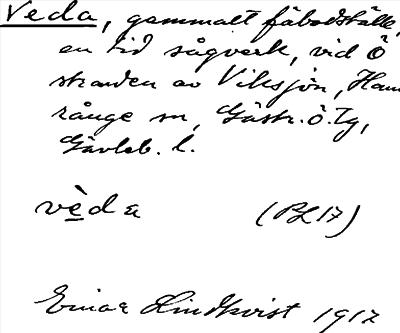 Veda, gammalt fäbodställe,
en tid sågverk, vid Ö
stranden av Viksjön, Ham
rånge sn, Gästr. Ö. Tg,
Gävleb. l.
vèda (PL 17)
Einar Lindkvist 1917